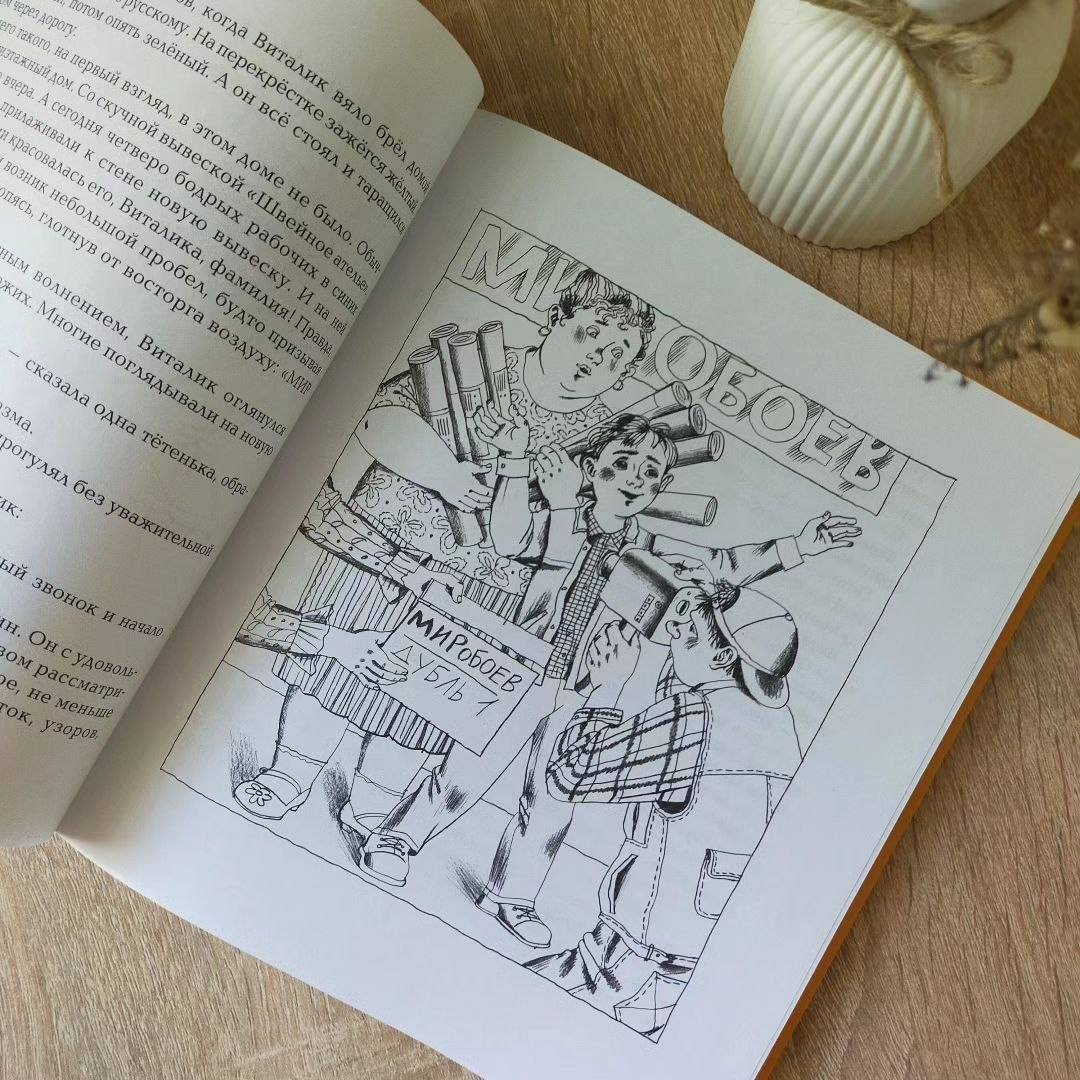 ов, когда Виталик вяло брёл домой
русскому. На перекрёстке зажёгся жёлтый,
потом опять зелёный. А он всё стоял и таращился
через дорогу.
такого, на первый взгляд, в этом доме не было. Обыч-
дом. Со скучной вывеской «Швейное ателье»,
вчера. А сегодня четверо бодрых рабочих в синих
прилаживали к стене новую вывеску. И на ней
красовалась его, Виталика, фамилия! Правда,
возник небольшой пробел, будто призывая
глотнув от восторга воздуху: «МИР
ным волнением, Виталик оглянулся
ожих. Многие поглядывали на новую
– сказала одна тётенька, обра-
рогулял без уважительной
ик:
ный звонок и начало
ин. Он с удоволь-
вом рассматри-
ое, не меньше
ток, узоров,
МИ ОБОЕВ
МИРОБОЕВ
ДУБЛЬ 1